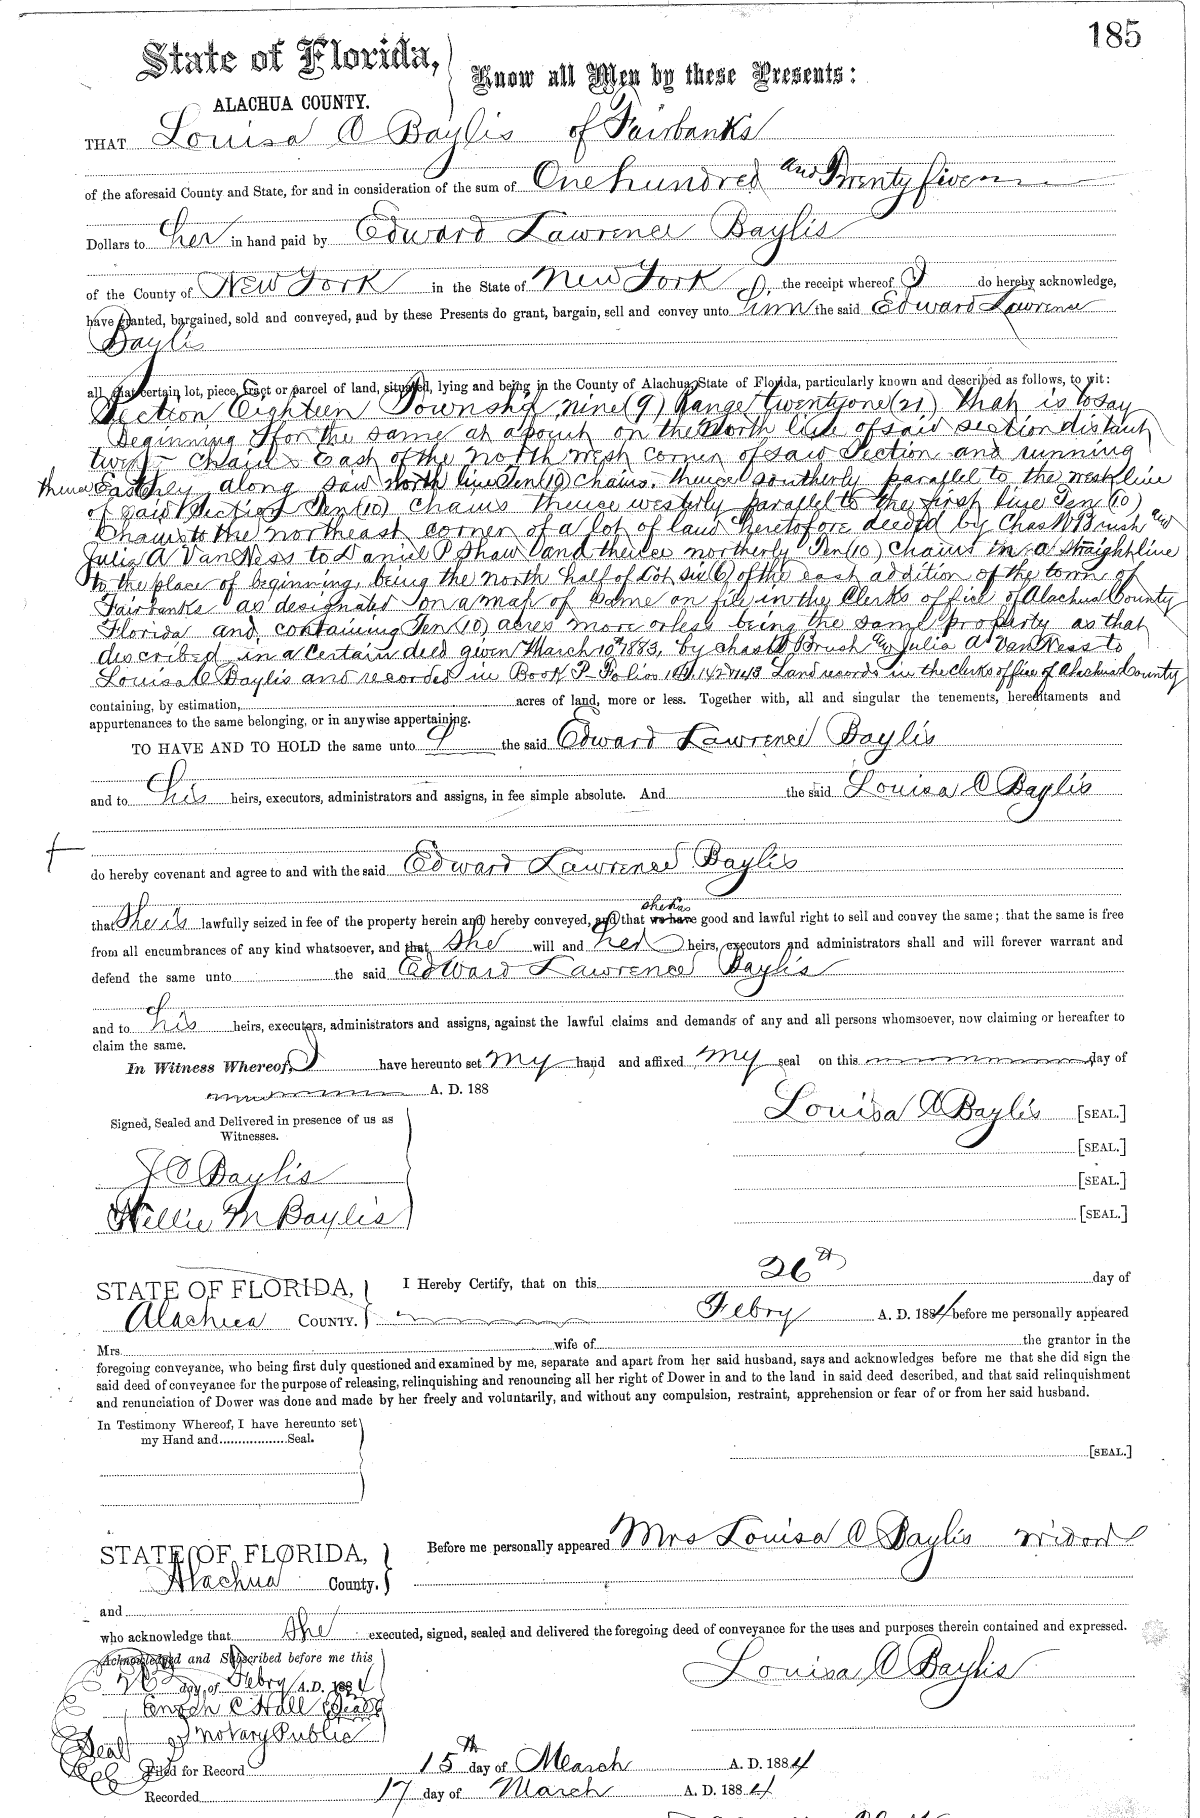 185
State of Florida,
ALACHUA COUNTY.
Know all Men by these Presents:
THAT Louisa C Baylis of Fairbanks
of the aforesaid County and State, for and in consideration of the sum of One hundred and Twenty five
Dollars to her in hand paid by Edward Lawrence Baylis
of the County of New York in the State of New York, the receipt whereof I do hereby acknowledge,
have granted, bargained, sold and conveyed, and by these Presents do grant, bargain, sell and convey unto him the said Edward Lawrence
Baylis
all that certain lot, piece, tract or parcel of land, situated, lying and being in the County of Alachua, State of Florida, particularly known and described as follows, to wit:
Section Eighteen Township nine (9) Range twenty one (21) that is to say
Beginning for the same at a point on the North line of said section distant
twenty chains East of the north west corner of said Section and running
thence Easterly along said north line Ten (10) chains. thence southerly parallel to the west line
of said Section Ten (10) chains thence westerly parallel to the first line Ten (10)
Chains to the northeast corner of a lot of land heretofore deeded by Chas W Brush and
Julia A Van Ness to Daniel P Shaw and thence northerly Ten (10) chains in a straight line
to the place of beginning, being the north half of Lot six (6) of the east addition of the town of
Fairbanks as designated on a map of same on file in the Clerks office of Alachua County
Florida and containing Ten (10) acres more or less being the same property as that
described in a Certain deed given March 10th 1883, by chas W Brush and Julia A Van Ness to
Louisa C Baylis and recorded in Book P Folios 142 143 Land records in the clerks office of Alachua County
containing, by estimation, acres of land, more or less. Together with, all and singular the tenements, hereditaments and
appurtenances to the same belonging, or in anywise appertaining.
TO HAVE AND TO HOLD the same unto the said Edward Lawrence Baylis
and to his heirs, executors, administrators and assigns, in fee simple absolute. And the said Louisa C Baylis
do hereby covenant and agree to and with the said Edward Lawrence Baylis
she has
that She is lawfully seized in fee of the property herein and hereby conveyed, and that we have good and lawful right to sell and convey the same; that the same is free
from all encumbrances of any kind whatsoever, and that she will and her heirs, executors and administrators shall and will forever warrant and
defend the same unto the said Edward Lawrence Baylis
and to his heirs, executors, administrators and assigns, against the lawful claims and demands of any and all persons whomsoever, now claiming or hereafter to
claim the same.
In Witness Whereof, I have hereunto set my hand and affixed my seal on this day of
A. D. 188
Louisa C Baylis [SEAL.]
Signed, Sealed and Delivered in presence of us as
Witnesses.
[SEAL.]
J C Baylis [SEAL.]
Willie M Baylis [SEAL.]
STATE OF FLORIDA,
Alachua COUNTY.
I Hereby Certify, that on this 26th day of
Febry A. D. 1884 before me personally appeared
Mrs. wife of the grantor in the
foregoing conveyance, who being first duly questioned and examined by me, separate and apart from her said husband, says and acknowledges before me that she did sign the
said deed of conveyance for the purpose of releasing, relinquishing and renouncing all her right of Dower in and to the land in said deed described, and that said relinquishment
and renunciation of Dower was done and made by her freely and voluntarily, and without any compulsion, restraint, apprehension or fear of or from her said husband.
In Testimony Whereof, I have hereunto set
my Hand and Seal.
[SEAL.]
STATE OF FLORIDA,
Alachua County.
Before me personally appeared Mrs Louisa C Baylis widow
and
who acknowledge that she executed, signed, sealed and delivered the foregoing deed of conveyance for the uses and purposes therein contained and expressed.
Acknowledged and Subscribed before me this
26 day of Febry A.D. 1884
Louisa C Baylis
Enoch C Hall
notary Public
Seal
Filed for Record 15th day of March A. D. 1884
Recorded 17 day of March A. D. 1884